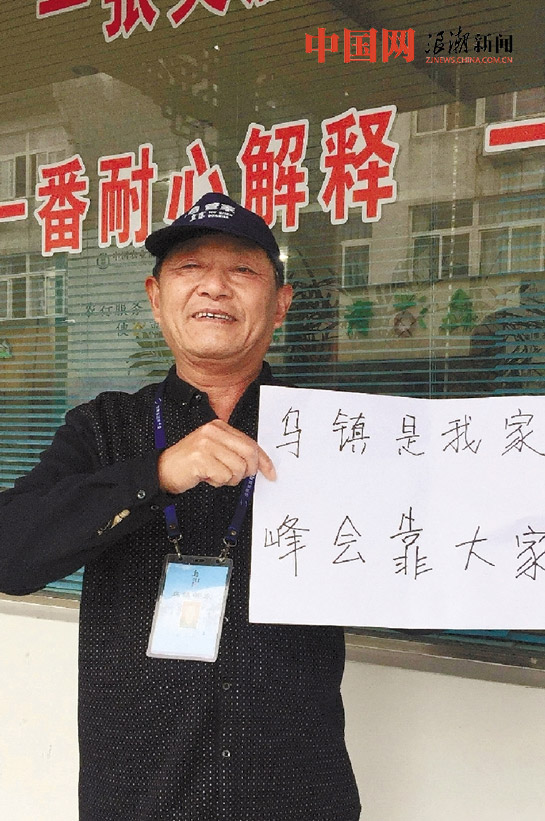 一张
中国网 浪潮新闻
ZJNEWS.CHINA.COM.CN
一番耐心解释 一
农行服务
乌镇是我家
峰会靠大家